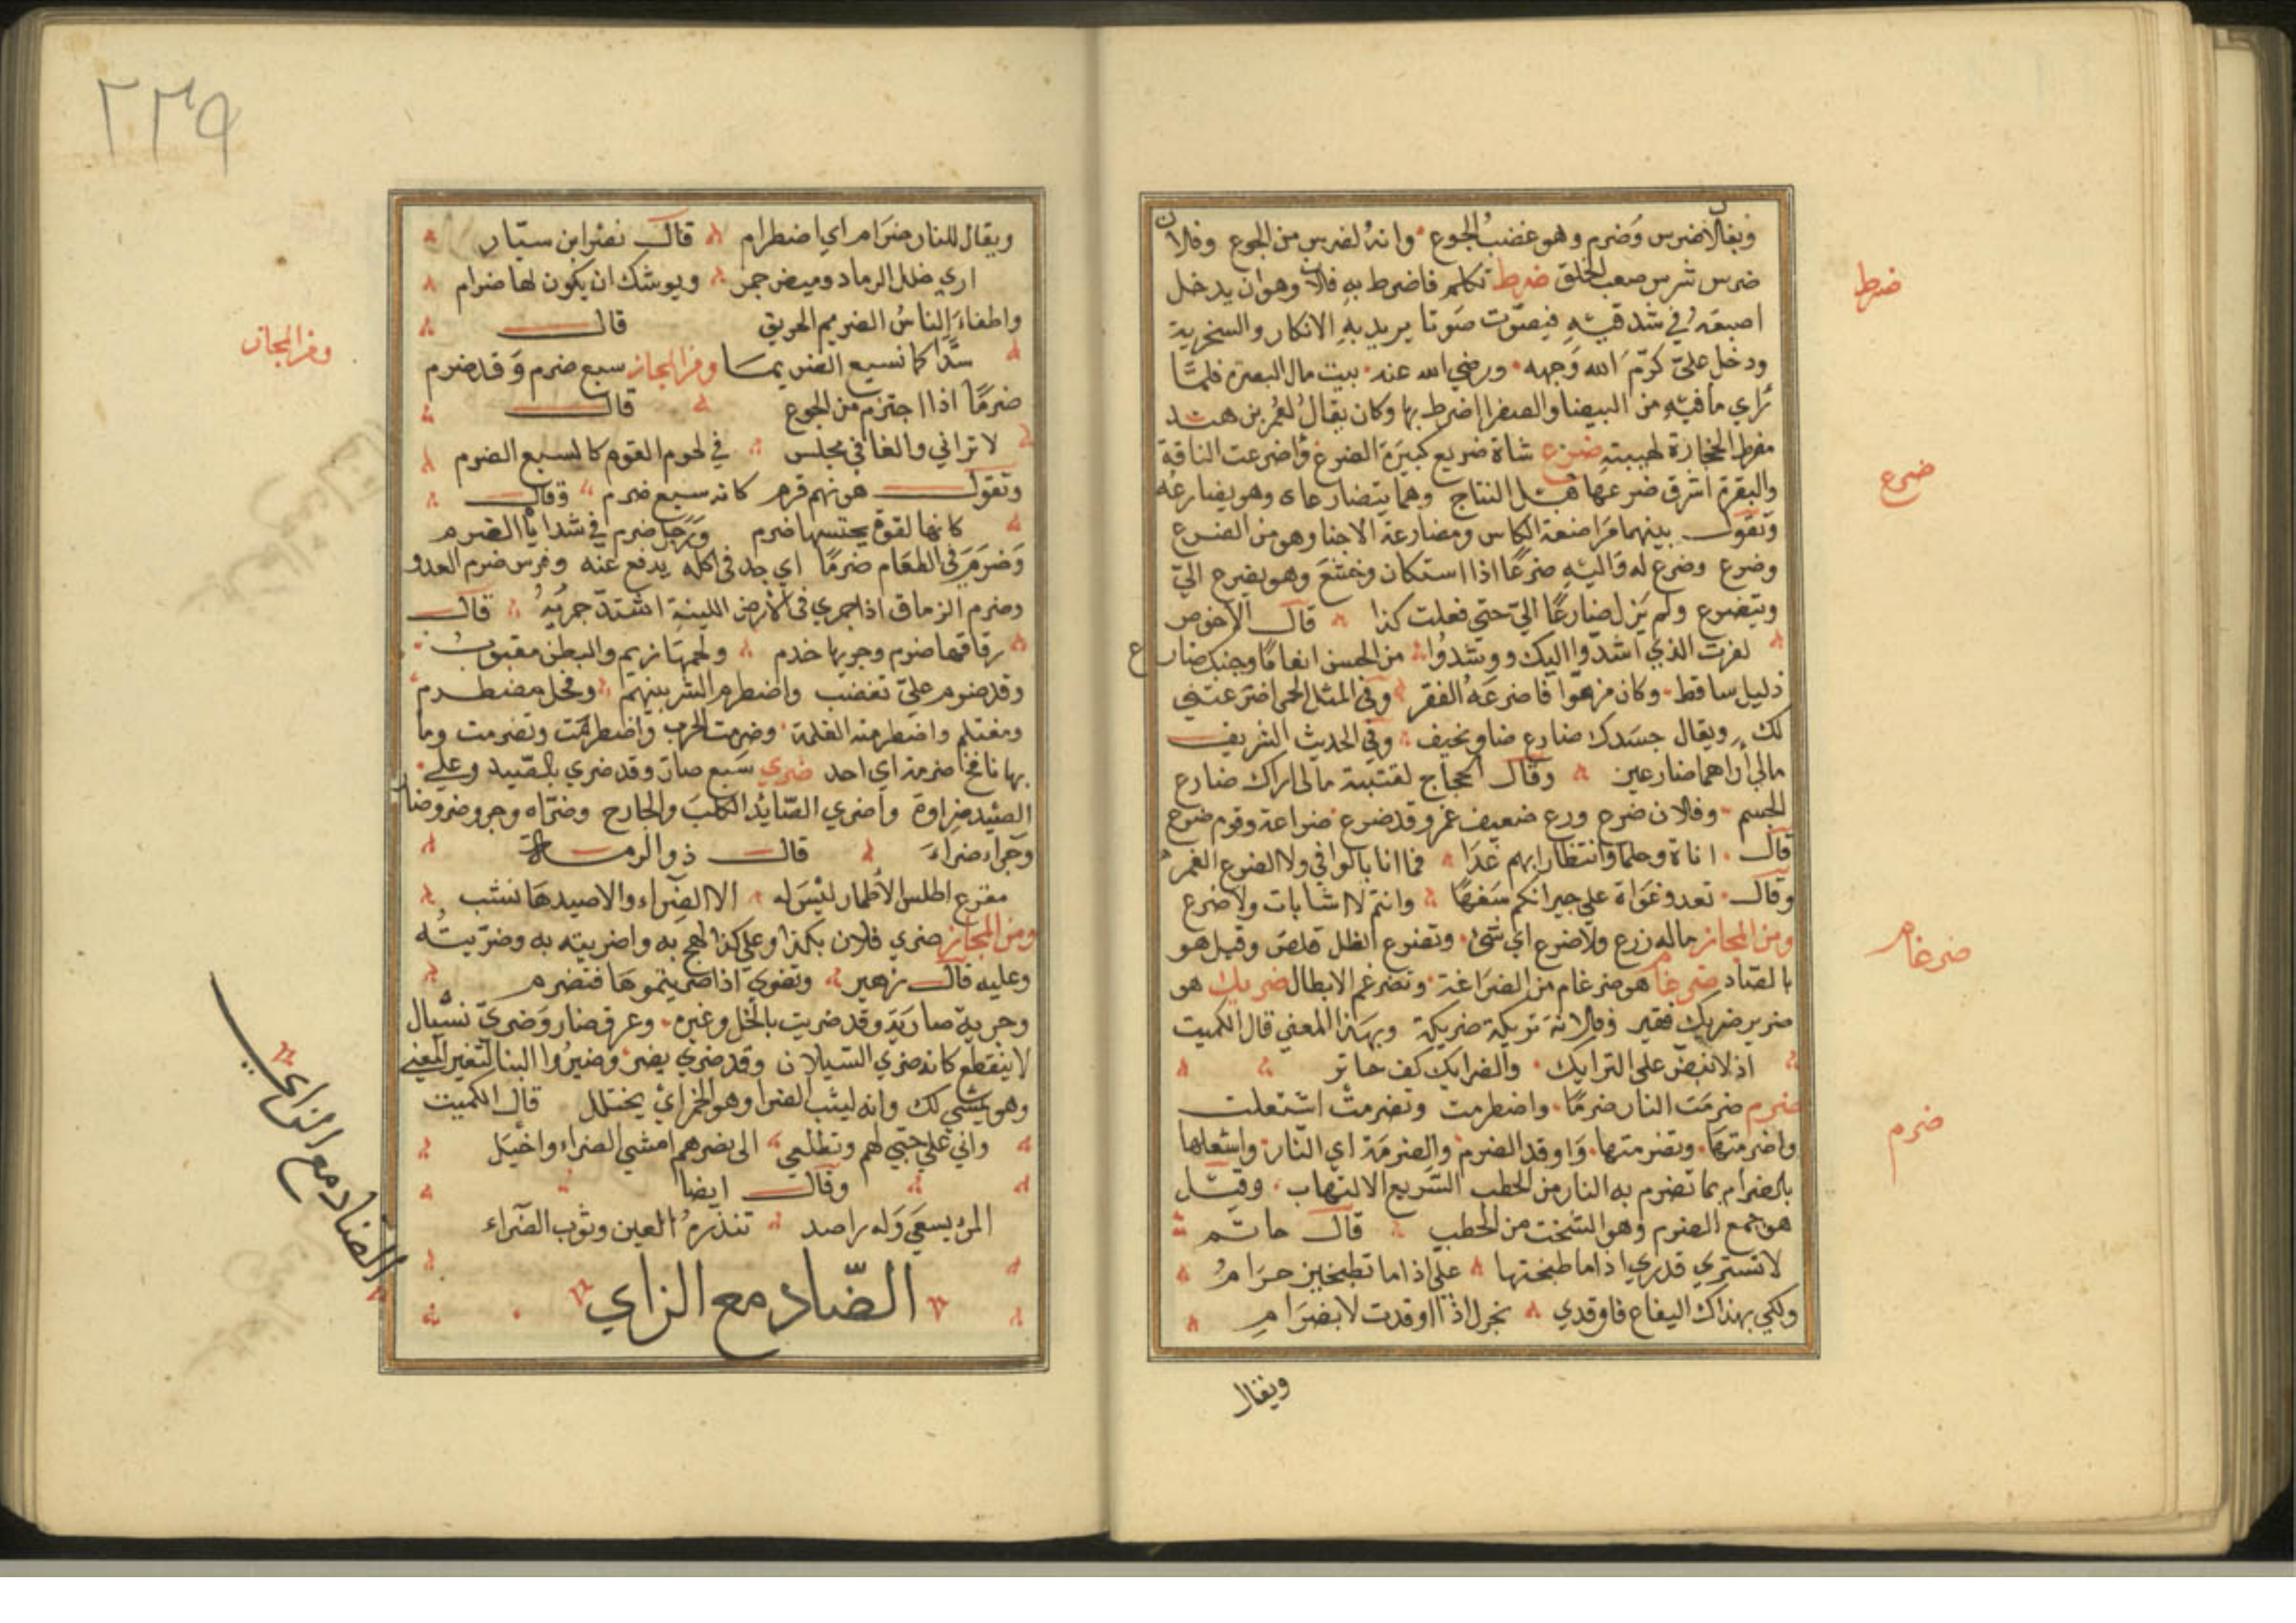 ويقال اضرس وضرم وهو غضب الجوع وانه لضرس من الجوع وفلان
ضرس شرس صعب الخلق ضرط تكلم فاضرط به فلان وهو ان يدخل
ضرط
اصبعه في شدقيه فيصوت صوتا يريد به الانكار والسخرية
ودخل علي كرّم الله وجهه ورضي الله عنه بيت مال البصرة فلما
رأي ما فيه من البيضا والصفرا اضرط بها وكان يقال لعمر بن هند
مضرط الحجارة لهيبته ضرع شاة ضريع كبيرة الضرع واضرعت الناقة
ضرع
والبقرة اشرق ضرعها قبل النتاج وهما يتضارعان وهو يضارعه
وتقول بينهما مراضعة الكاس ومضارعة الاجنا وهو من الضرع
وضرع وضرع له واليه ضرعًا اذا استكان وخشع وهو يضرع اليّ
ويتضرع ولم يزل ضارعًا اليّ حتي فعلت كذا قال الاخوص
من الحسن انعامًا وجنبك ضارع
ذليل ساقط وكان مزهوا فاضرعه الفقر وفي المثل الحمى اضرعتني
لك ويقال جسدك ضارع ضاو نحيف وفي الحديث الشريف
مالي أراهما ضارعين وقال الحجاج لقتيبة مالي اراك ضارع
الجسم وفلان ضرع ورع ضعيف غمر وقد ضرع ضراعة وقوم ضرع
قال اناة وحلما وانتظارا بهم غدا فما انا بالواني ولا الضرع الغمر
وقال تعدو غواة علي جيرانكم سفهًا وانتم لا اشابات ولا ضرع
ومن المجاز ماله زرع ولا ضرع اي شئ وتضرع الظل قلص وقيل هو
بالصاد ضرغام هو ضرغام من الضراغمة وتضرغم الابطال ضريك هو
ضرغام
ضرير ضريك فقير وفلانة تريكة ضريكة وبهذا المعني قال الكميت
اذ لا تبض على الترايك والضرايك كف حاتر
ضرم ضرمت النار ضرمًا واضطرمت وتضرمت اشتعلت
ضرم
واضرمتها وتضرمتها واوقد الضرم والضرمة اي النار واشعلها
بالضرام بما تضرم به النار من الحطب السريع الالتهاب وقيل
هو جمع الضرم وهو الشخت من الحطب قال حاتم
لا تستري قدري اذا ما طبختها علي اذا ما تطبخين حرام
ولكن بهذاك اليفاع فاوقدي بجزل اذا اوقدت لا بضرام
ويقال
٢٣٩
ويقال للنار ضرام اي اضطرام قال نصر ابن سيّار
اري خلل الرماد وميض جمر ويوشك ان يكون لها ضرام
واطفاء الناس الضريم الحريق قال
سدّا كما نسبع الضريما ومن المجاز سبع ضرم وقد ضرم
ومن المجاز
ضرمًا اذا اجترم من الجوع قال
لا تراني والغا في مجلس في لحوم القوم كالسبع الضرم
وتقول هو نهم قرم كانه سبع ضرم وقال
كانها لقوة يحتسبها ضرم ورجل ضرم في شدايا الضرم
وضرم في الطعام ضرمًا اي جد في اكله يدفع عنه وفرس ضرم العدو
وضرم الرقاق اذا جري في الأرض اللينة اشتدّ جريه قال
رقاقها ضرم وجريها خذم ولحمها زيم والبطن مقبوب
وقد ضرم عليّ تغضب واضطرم الشر بينهم وفحل مضطرم
ومغتلم واضطرمته الغلمة وضرمت الحرب واضطرمت وتضرمت وما
بها نافخ ضرمة اي احد ضري سبع ضار وقد ضري بالصيد وعلي
الصيد ضراوة واضري الصائد الكلب والجارح وضرّاه وجرو ضرو وضار
وجراء ضراء قال ذو الرمة
مقزع اطلس الأطمار ليس له الا الضراء والا صيدها نشب
ومن المجاز ضري فلان بكذا وعلي كذا لهج به واضريته به وضرّيته
وعليه قال زهير وتضري اذا ضريتموها فتضرم
وجرية ضارية وقد ضريت بالخل وغيره وعرق ضار وضريّ سيّال
لا ينقطع كانه ضري السيلان وقد ضري يضر وضيروا البنا لتغير المعني
وهو يمشي لك وانه ليثب الضرا وهو الخمر اي يختلك قال الكميت
واني علي حبي لهم وتطلعي الى نصرهم امشي الضراء واختل
وقال ايضا
المرء يسعي وله راصد تنذره العين وثوب الضراء
الضّاد مع الزاي
الضاد مع الزاي